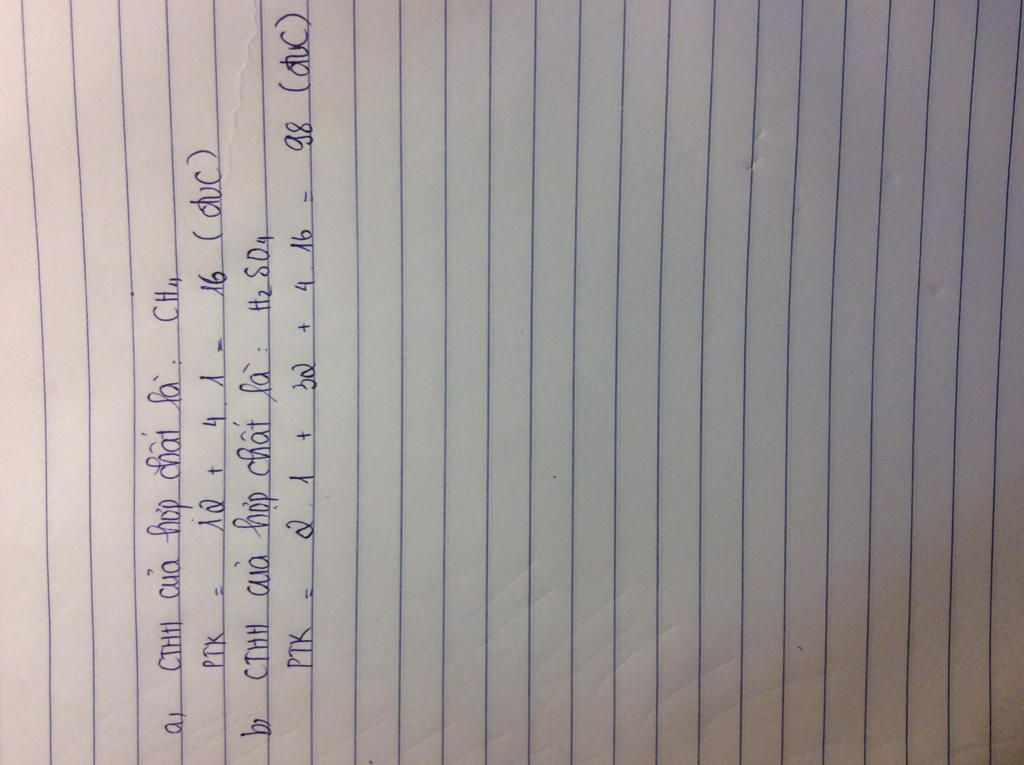 a, CTHH của hợp chất là: CH₄
PTK = 12 + 4.1 = 16 (đvC)
b, CTHH của hợp chất là: H₂SO₄
PTK = 2.1 + 32 + 4.16 = 98 (đvC)